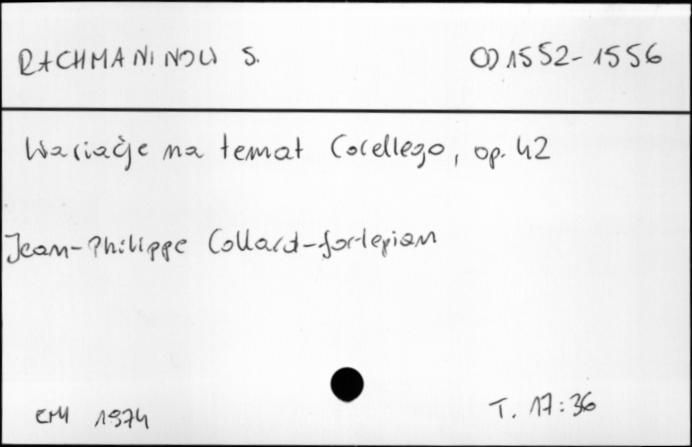 RACHMANINOW S.
CD 1552-1556
Wariacje na temat Corellego, op. 42
Jean-Philippe Collard-fortepian
EMI 1974
T. 17:36